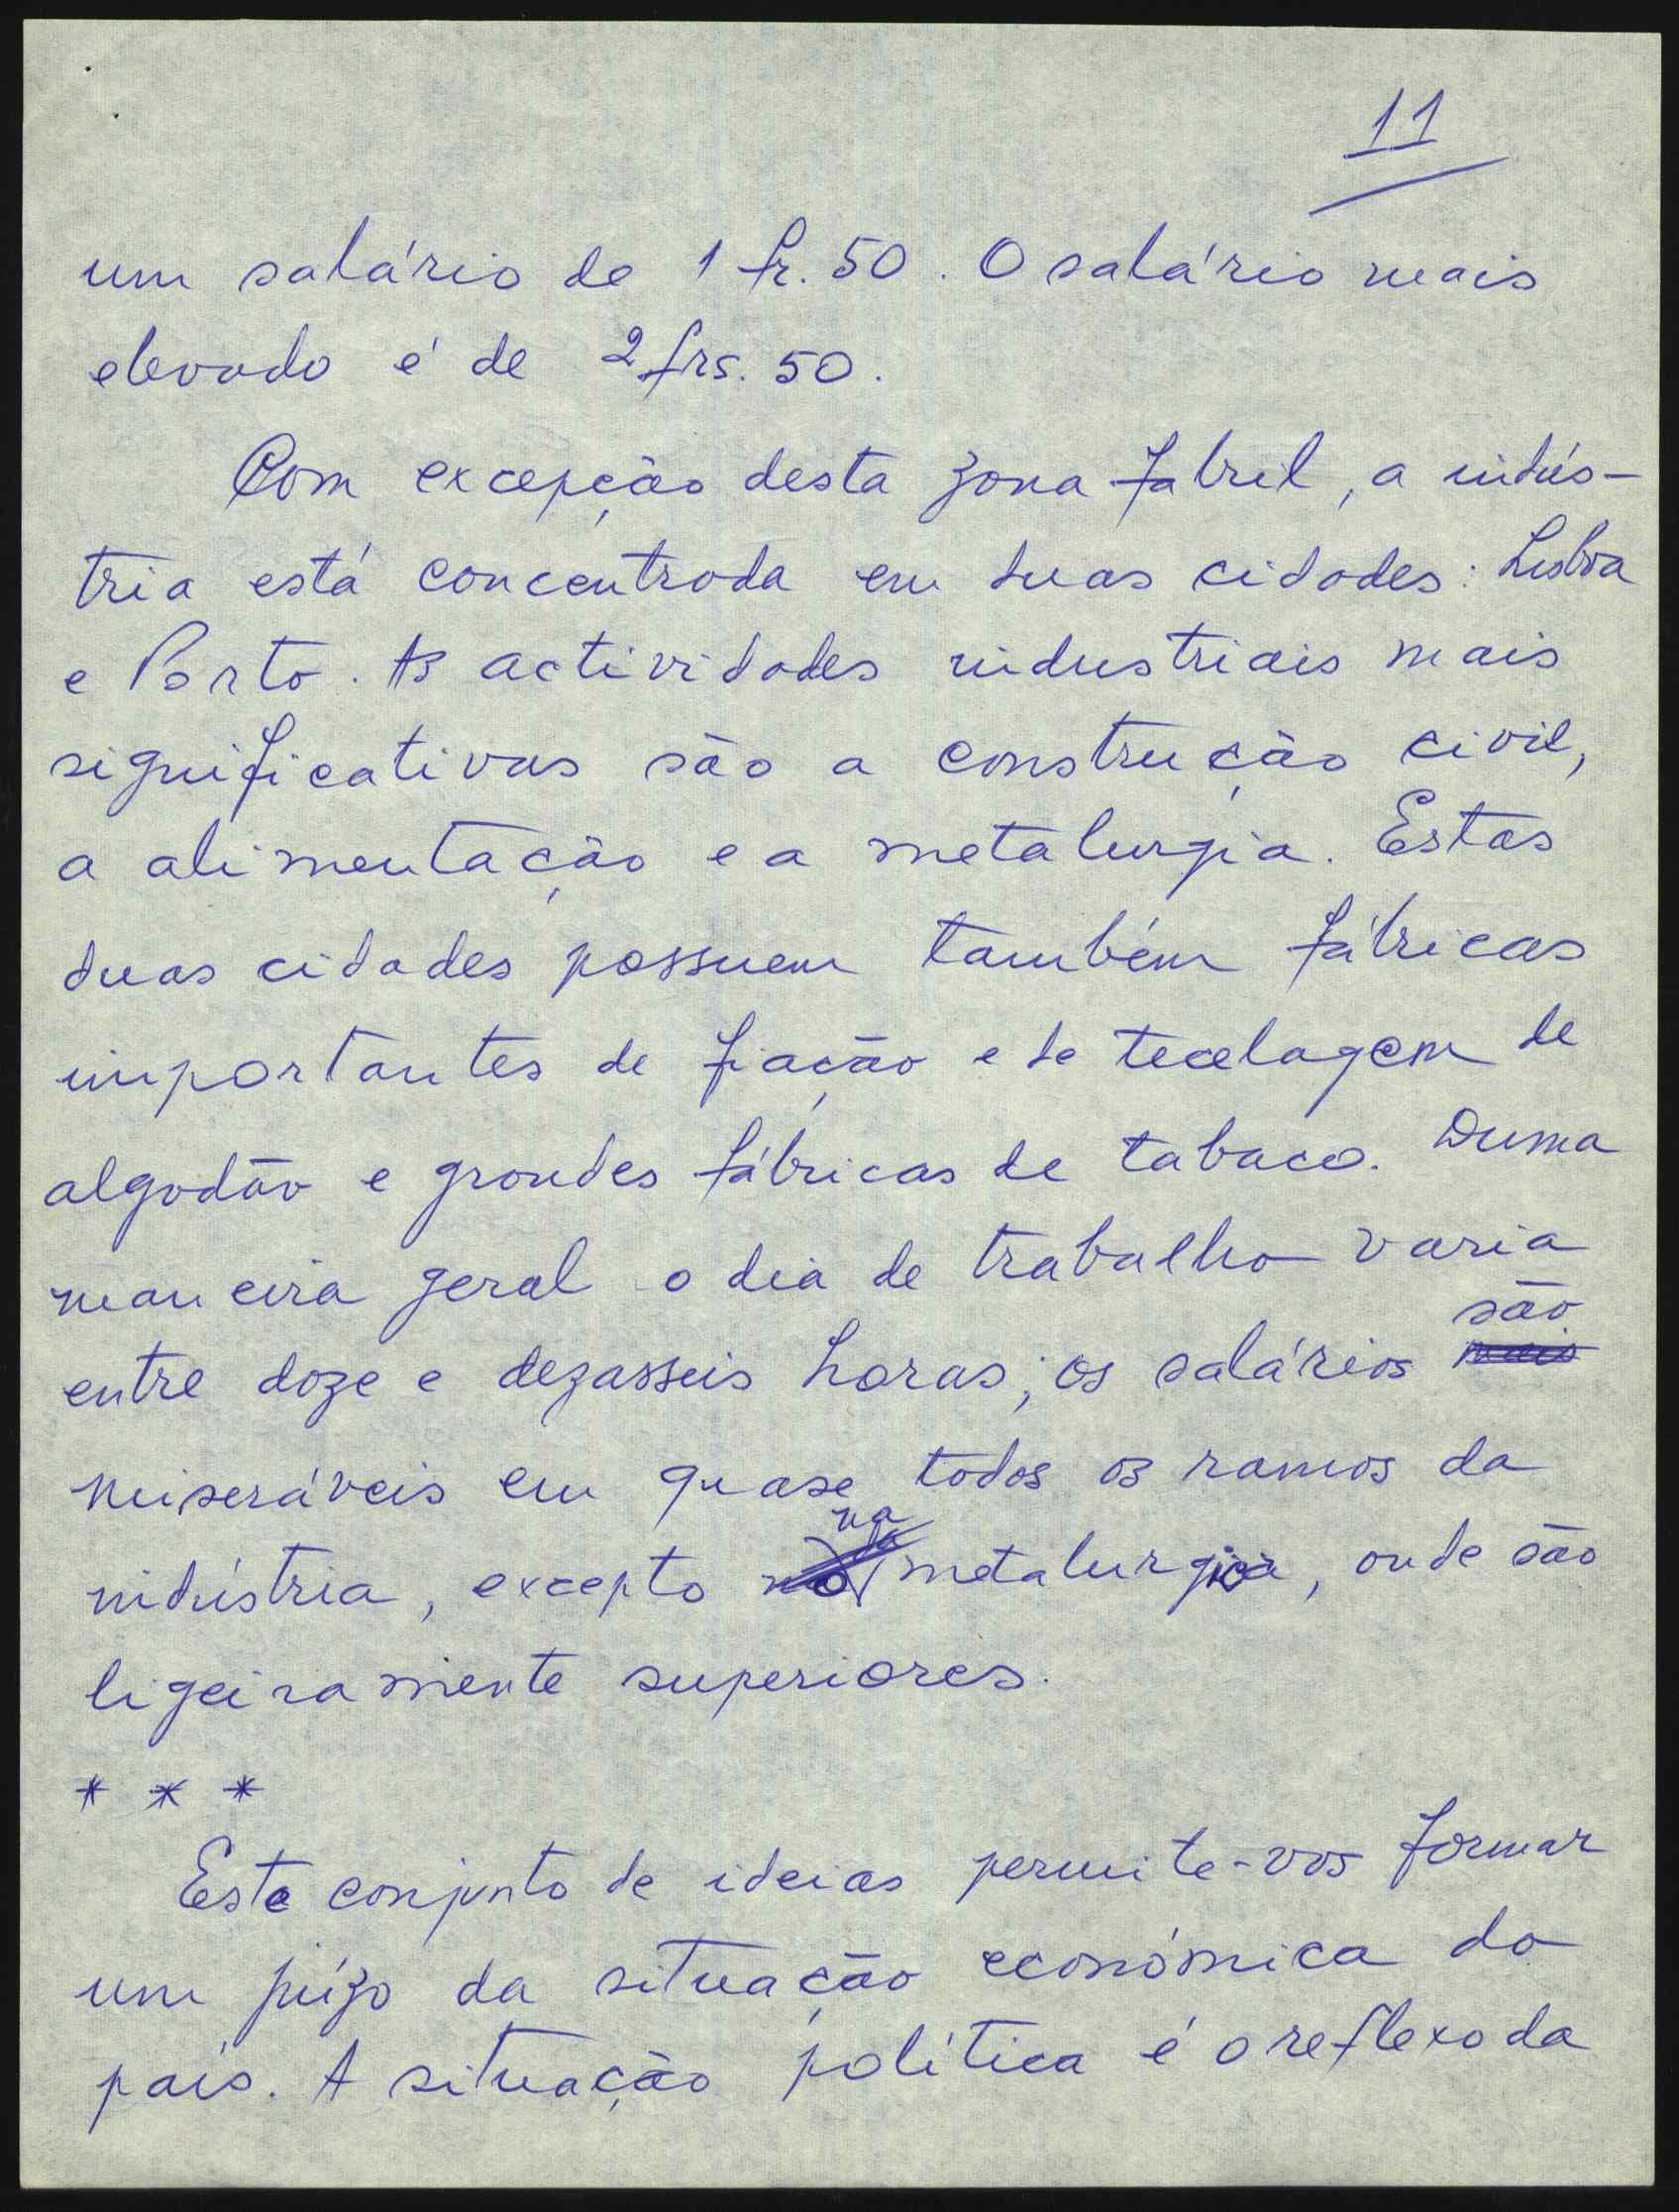 11
um salário de 1 fr. 50. O salário mais
elevado é de 2 frs. 50.
Com excepção desta zona fabril, a indús-
tria está concentrada em duas cidades: Lisboa
e Porto. As actividades industriais mais
significativas são a construção civil,
a alimentação e a metalurgia. Estas
duas cidades possuem também fábricas
importantes de fiação e de tecelagem de
algodão e grandes fábricas de tabaco. Duma
maneira geral o dia de trabalho varia
entre doze e dezasseis horas; os salários são
miseráveis em quase todos os ramos da
indústria, excepto na metalurgia, onde são
ligeiramente superiores.
* * *
Este conjunto de ideias permite-vos formar
um juízo da situação económica do
país. A situação política é o reflexo da